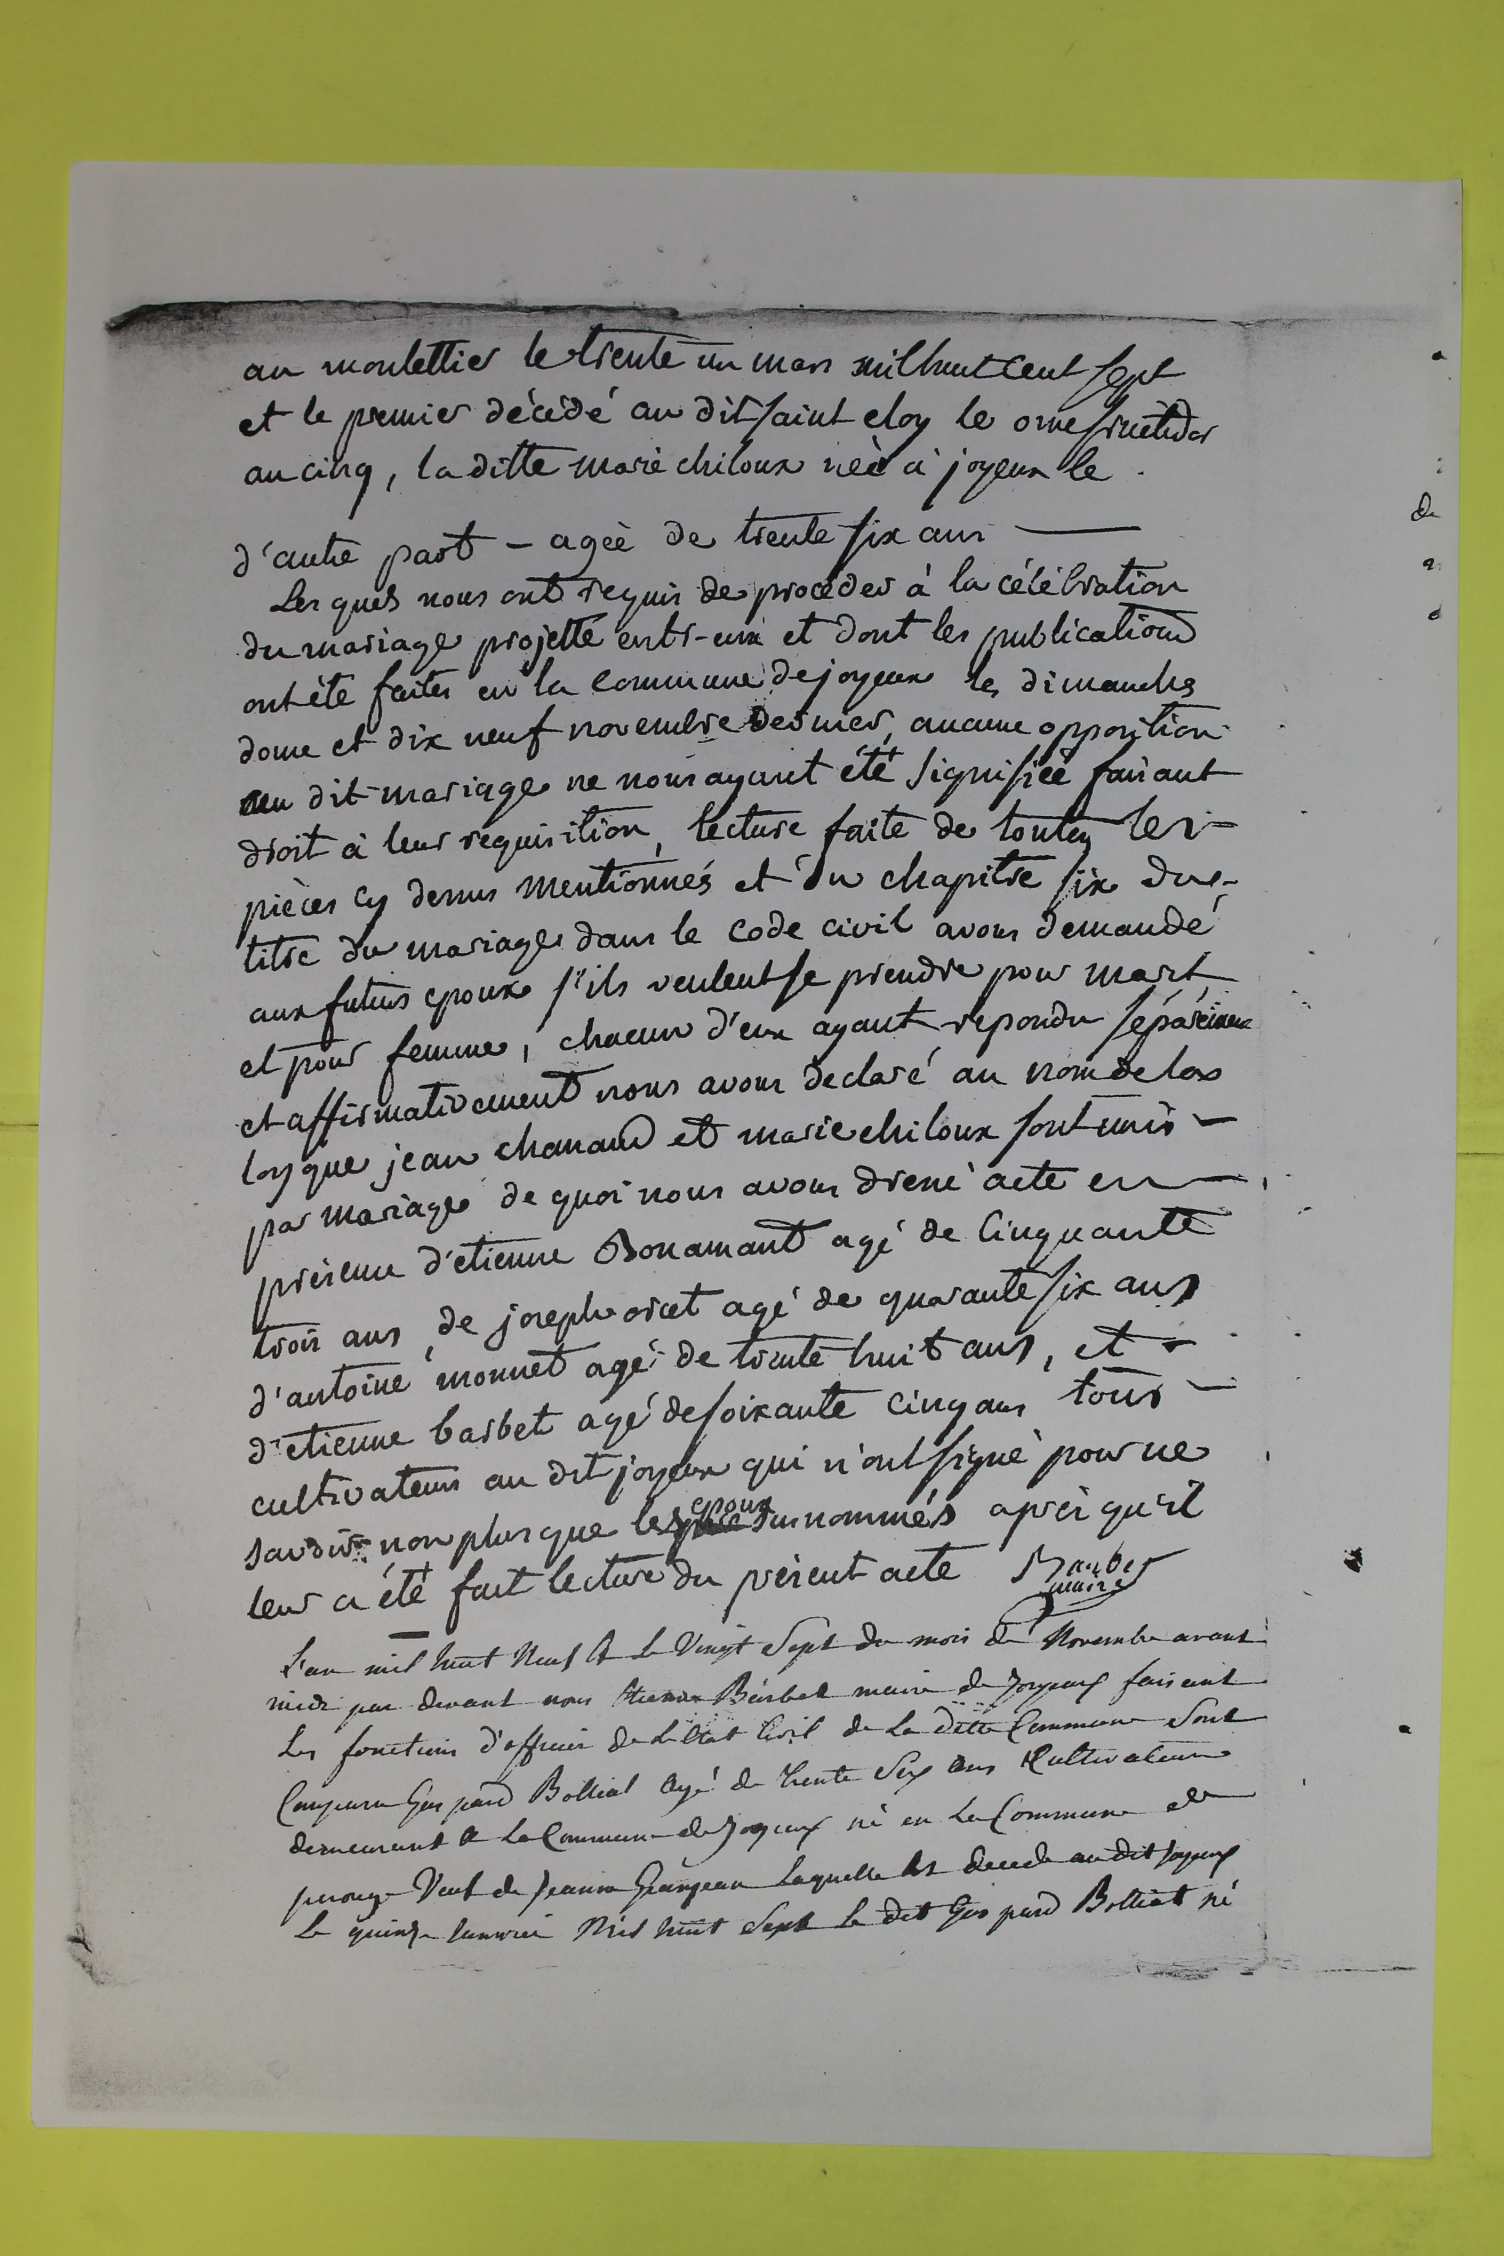 au montellier le trente un mars mil huit cent sept
et le premier décédé au dit saint eloy le onze fructidor
an cinq, la ditte marie chiloux née à joyeux le
d'autre part - agée de trente six ans
Les quels nous ont requis de procéder à la célébration
du mariage projetté entr-eux et dont les publications
ont été faites en la commune de joyeux les dimanches
douze et dix neuf novembre dernier, aucune opposition
au dit mariage ne nous ayant été signifiée faisant
droit à leur requisition, lecture faite de toutes les
pièces cy dessus mentionnés et du chapitre six du
titre du mariage dans le code civil avons demandé
aux futurs epoux s'ils veulent se prendre pour mari
et pour femme, chacun d'eux ayant repondu séparément
et affirmativement nous avons declaré au nom de la
loy que jean chanaud et marie chiloux sont unis
par mariage de quoi nous avons dressé acte en
présence d'etienne Bonamant agé de cinquante
trois ans, de joseph orcet agé de quarante six ans
d'antoine monnet agé de trente huit ans, et
d'etienne barbet agé de soixante cinq ans tous
cultivateurs au dit joyeux qui n'ont signé pour ne
savoir non plus que les epoux susnommés après qu'il
leur a été fait lecture du présent acte Barbet
maire
L'an mil huit Neuf & Le Vingt Sept du mois de Novembre avant
midi par devant nous Etienne Barbet maire de Joyeux faisant
Les fonctions d'officier de L'Etat Civil de La ditte Commune Sont
Comparu Gaspard Bolliat Agé de Trente Six ans Cultivateur
demeurant a La Commune de Joyeux né en La Commune de
perouge Veuf de Jeanne Granjean Laquelle Est decede au dit Joyeux
Le quinze Janvier Mil huit Sept Le dit Gaspard Bolliat né